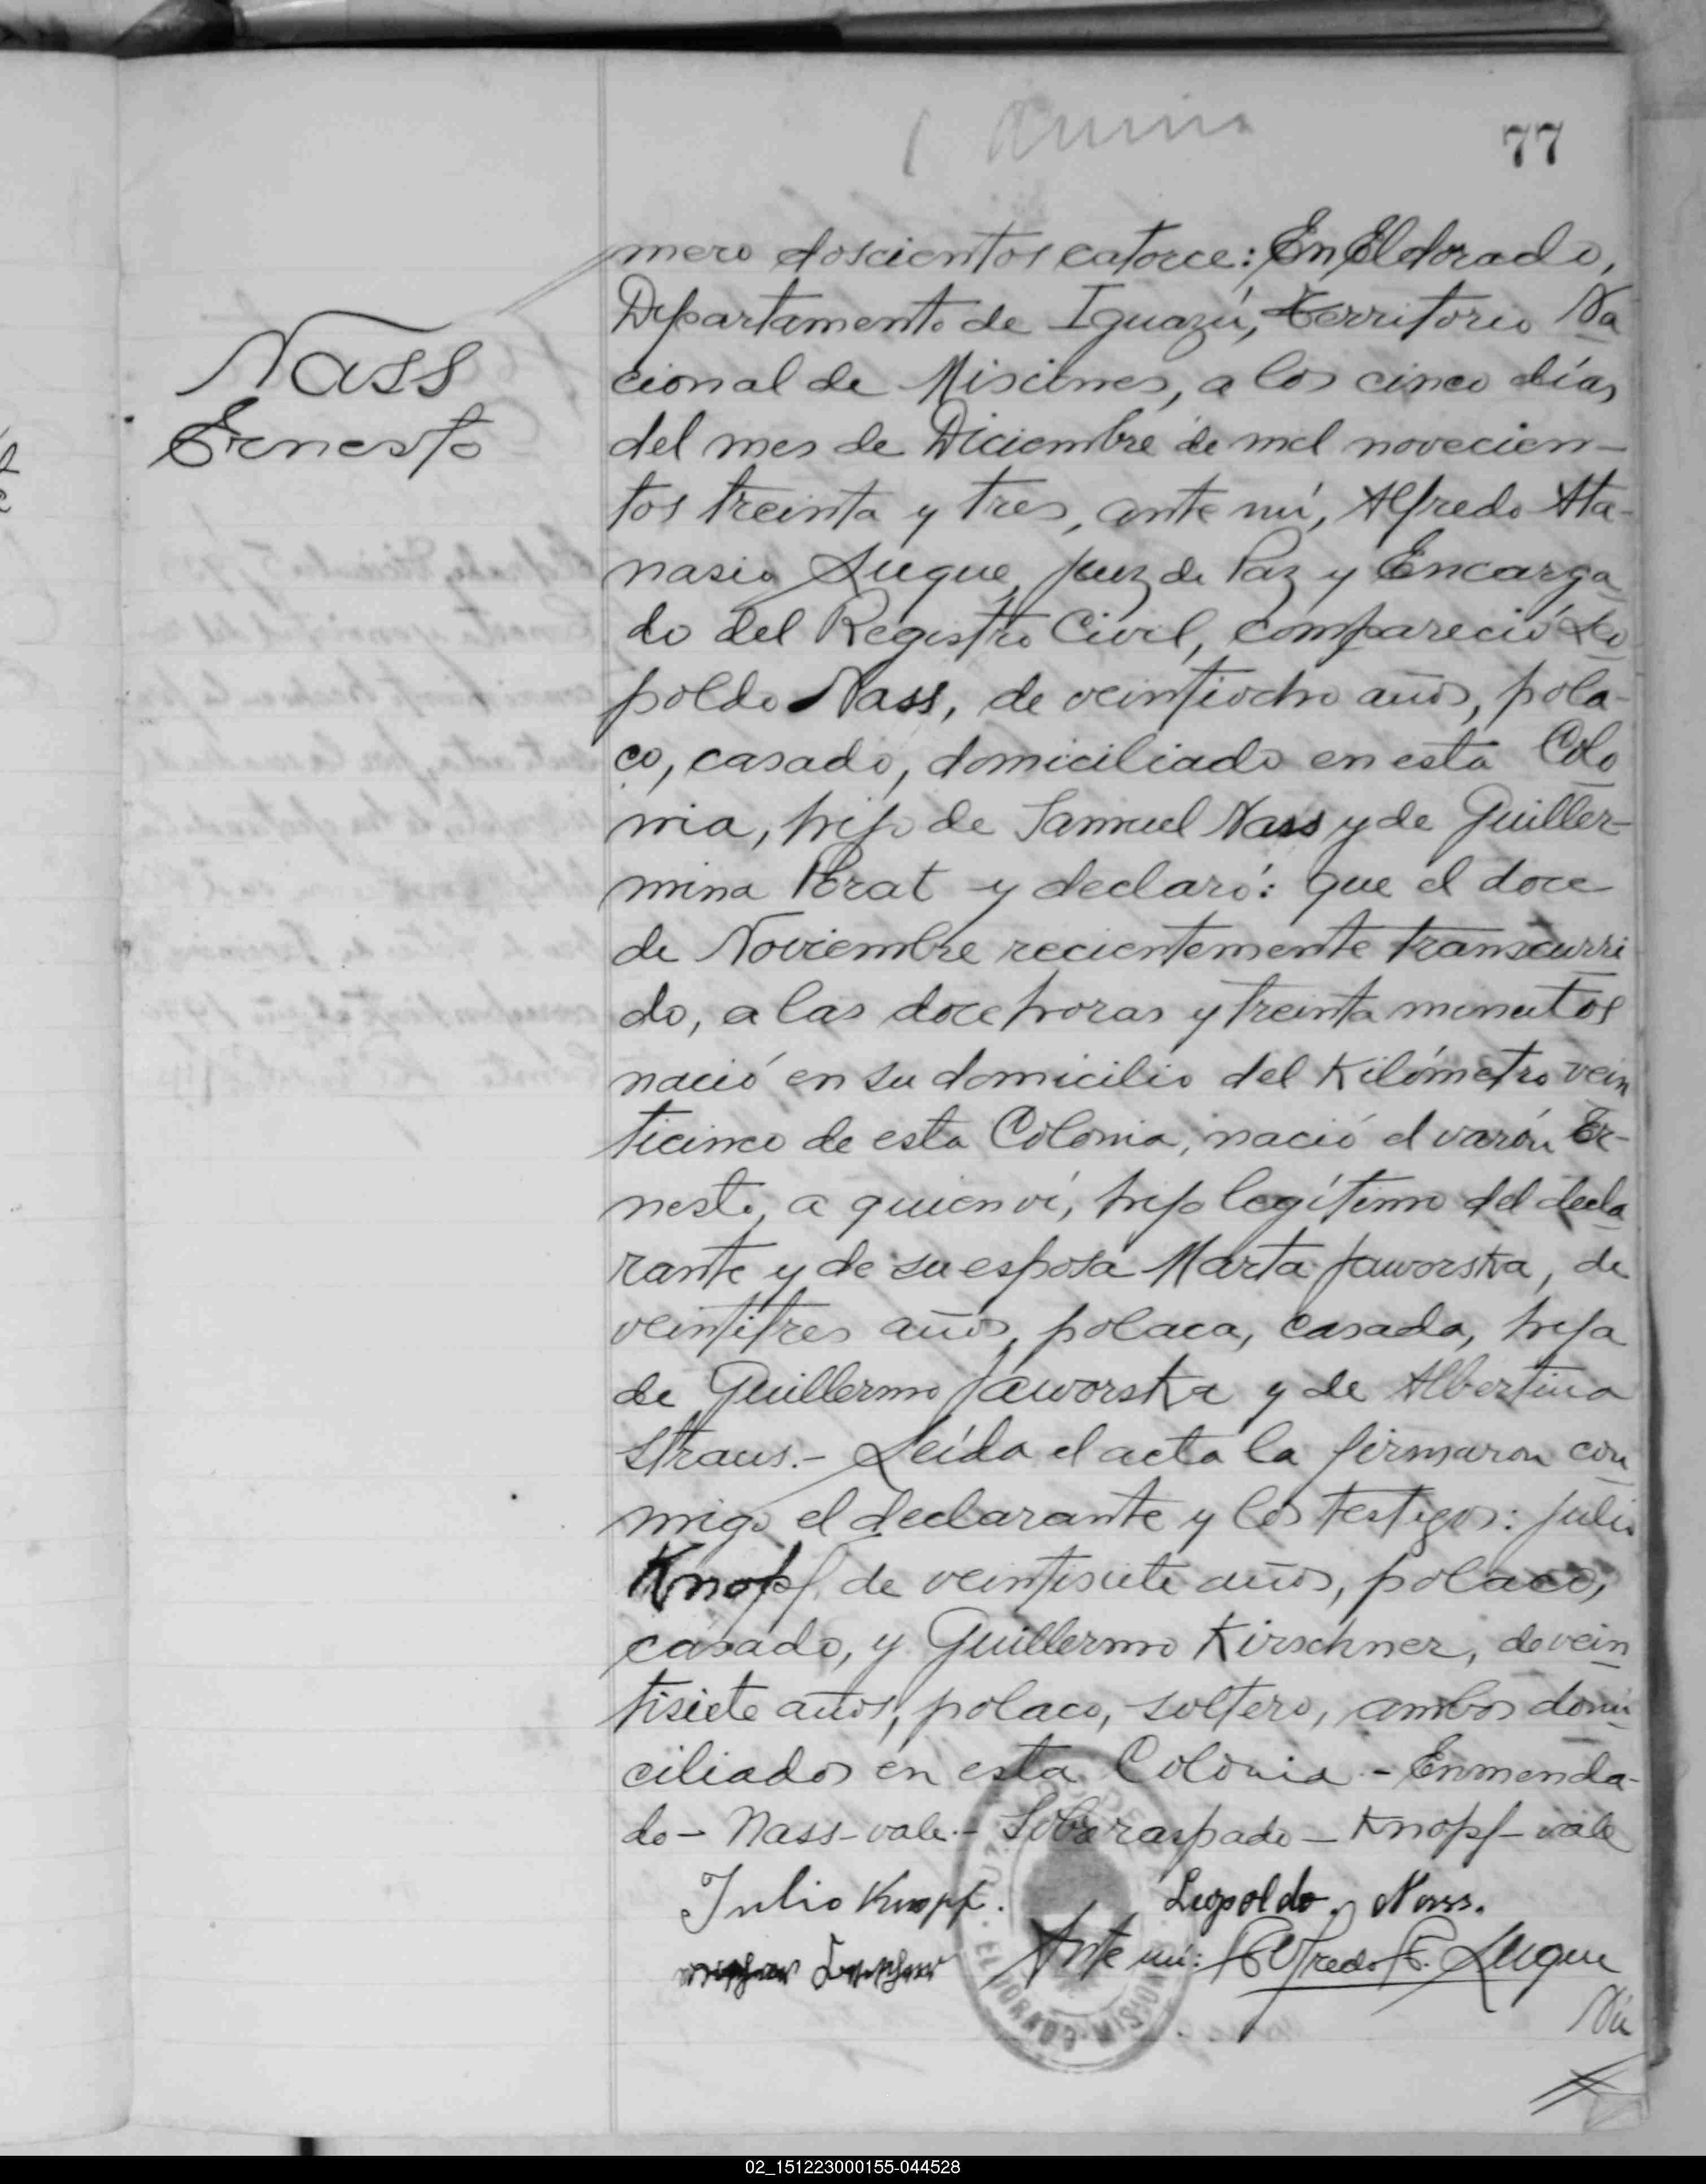 77
mero doscientos catorce: En Eldorado,
Departamento de Iguazú, Territorio Na
cional de Misiones, a los cinco días
Nass
Ernesto
del mes de Diciembre de mil novecien-
tos treinta y tres, ante mí, Alfredo Ata-
nasio Luque, Juez de Paz y Encarga
do del Registro Civil, compareció Leo
poldo Nass, de veintiocho años, pola-
co, casado, domiciliado en esta Colo
nia, hijo de Samuel Nass y de Guiller-
mina Prat y declaró: que el doce
de Noviembre recientemente transcurri
do, a las doce horas y treinta minutos
nació en su domicilio del Kilómetro vein
ticinco de esta Colonia, nació el varón Er-
nesto, a quien ví, hijo legítimo del decla
rante y de su esposa Marta Jaworska, de
veintitres años, polaca, casada, hija
de Guillermo Jaworska y de Albertina
Straus.- Leída el acta la firmaron con
migo el declarante y los testigos: Julio
Knopf, de veintisiete años, polaco,
casado, y Guillermo Kirschner, de vein
tisiete años, polaco, soltero, ambos domi
ciliados en esta Colonia.- Enmenda-
do - Nass - vale.- Sobreraspado - Knopf - vale
Julio Knopf. Leopoldo Nass.
Ante mí: Alfredo A. Luque
Nú
ELDORADO - MISIONES
02_151223000155-044528